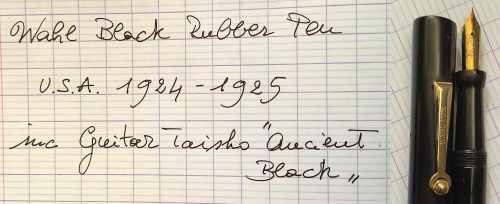 Wahl Black Rubber Pen
U.S.A. 1924 - 1925
inc Guitar Taisho "Ancient
Black "